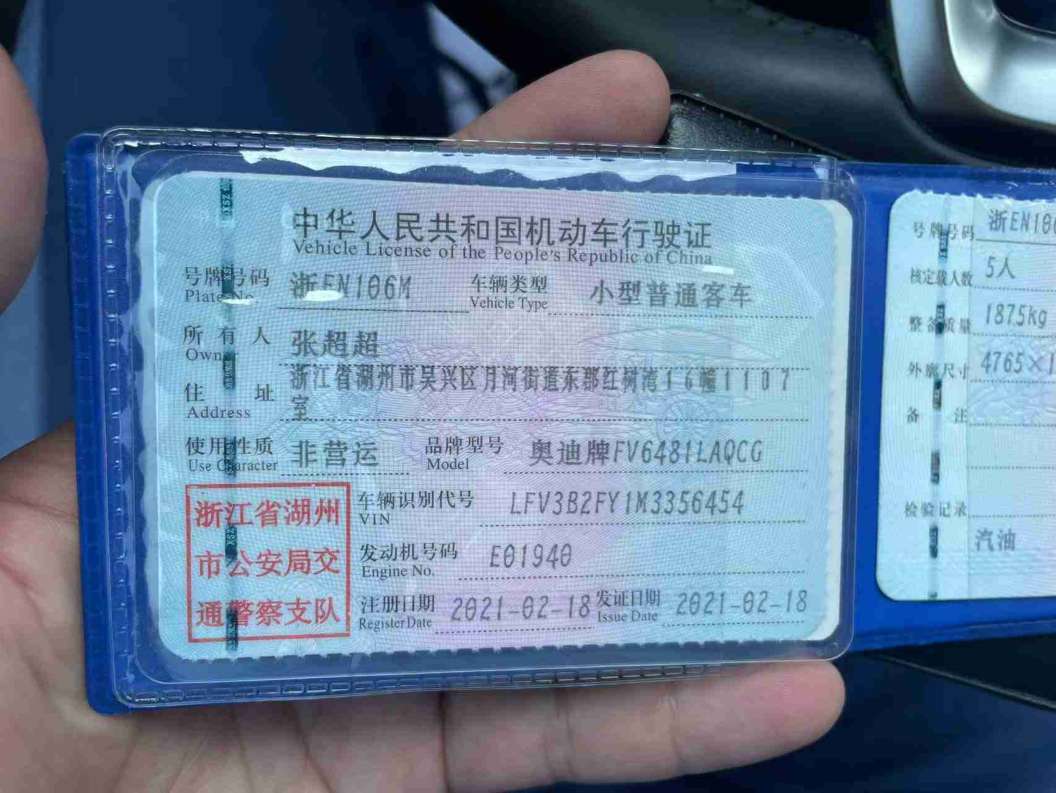 中华人民共和国机动车行驶证
Vehicle License of the People's Republic of China
号牌号码 浙EN106M 车辆类型 小型普通客车
Plate No. Vehicle Type
所有人 张超超
Owner
住址 浙江省湖州市吴兴区月河街道东部红树湾16幢1107
Address 室
使用性质 非营运 品牌型号 奥迪牌FV6481LAQCG
Use Character Model
浙江省湖州
市公安局交
通警察支队
车辆识别代号 LFV3B2FY1M3356454
VIN
发动机号码 E01940
Engine No.
注册日期 2021-02-18 发证日期 2021-02-18
Register Date Issue Date
号牌号码 浙EN10
核定载人数 5人
整备质量 1875kg
外廓尺寸 4765×1
备注
检验记录
汽油